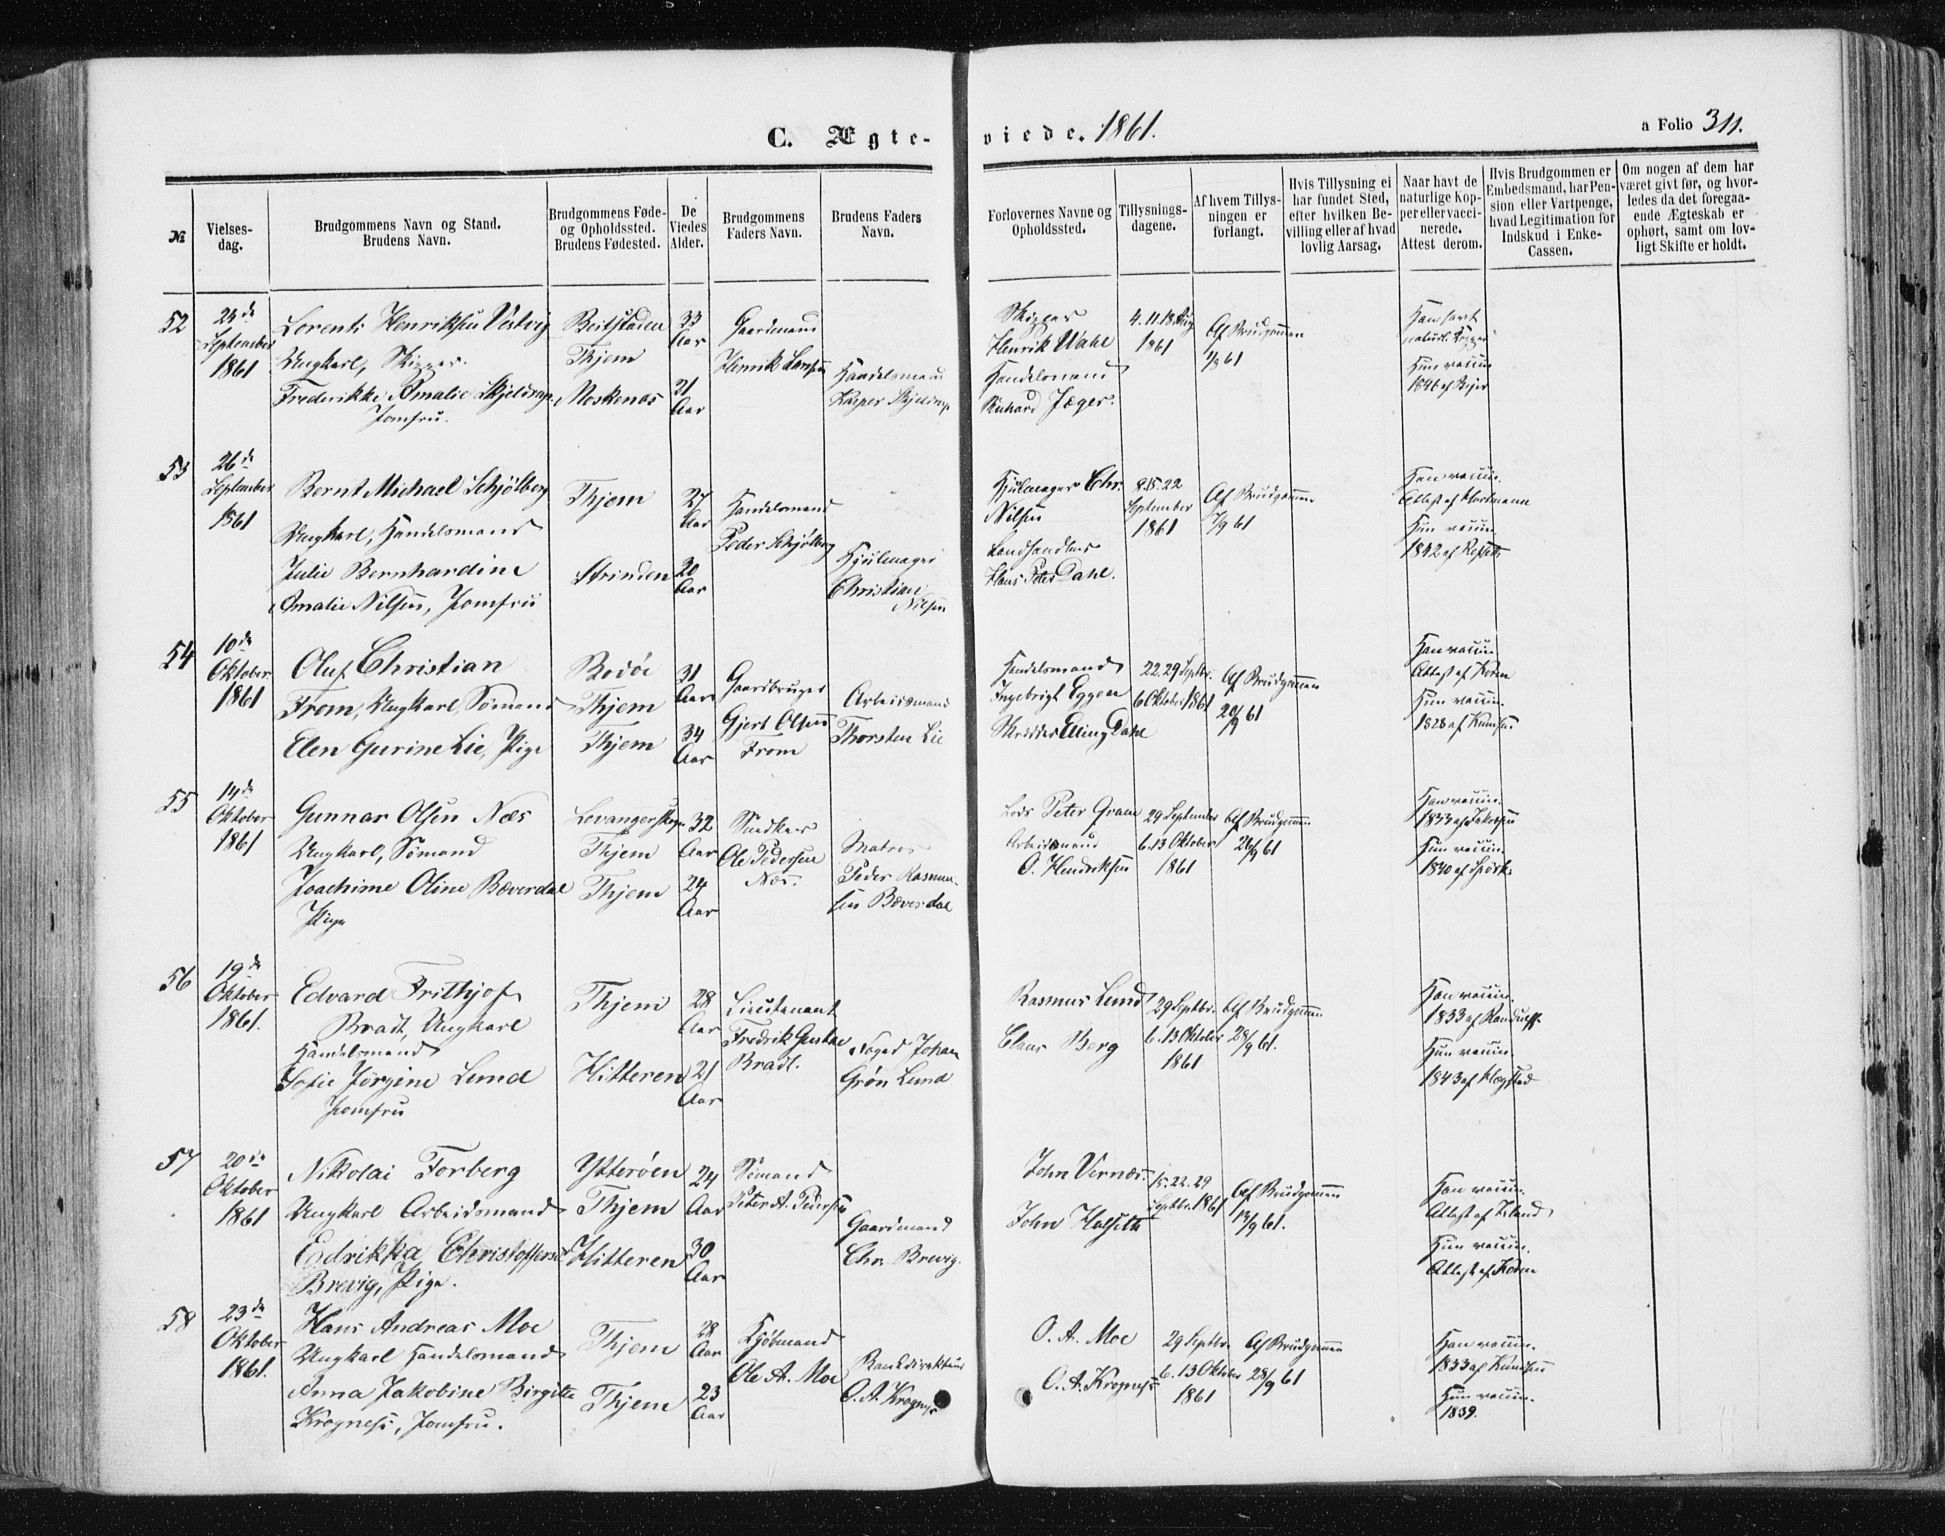 C. Ægte-
viede. 1861.
a Folio 311.
№
Vielses-
dag.
Brudgommens Navn og Stand.
Brudens Navn.
Brudgommens Føde-
og Opholdssted.
Brudens Fødested.
De
Viedes
Alder.
Brudgommens
Faders Navn.
Brudens Faders
Navn.
Forlovernes Navne og
Opholdssted.
Tillysnings-
dagene.
Af hvem Tillys-
ningen er
forlangt.
Hvis Tillysning ei
har fundet Sted,
efter hvilken Be-
villing eller af hvad
lovlig Aarsag.
Naar havt de
naturlige Kop-
per eller vacci-
nerede.
Attest derom.
Hvis Brudgommen er
Embedsmand, har Pen-
sion eller Vartpenge,
hvad Legitimation for
Indskud i Enke-
Cassen.
Om nogen af dem har
været givt før, og hvor-
ledes da det foregaa-
ende Ægteskab er
ophørt, samt om lov-
ligt Skifte er holdt.
52
24de
September
1861
Lorents Henriksen
Ungkarl, Skipper.
Frederikke Amalie Skjeldrup
Jomfru.
Beitstaden
Thjem
Moskenæs
33
Aar
21
Aar
Gaardmand
Henrik Larsen
Handelsmand
Kasper Skjeldrup
Skipper
Henrik Wahl
Handelsmand
Richard Jæger.
4. 11. 18 Aug
1861
Af Brudgommen
1/8 61
Han havt
naturl. Kopper
Hun vaccin
1846 af
53
26de
September
1861
Bernt Michael Schjølberg
Ungkarl, Handelsmand
Julie Bernhardine
Amalie Nilsen, Jomfru
Thjem
Strinden
27
Aar
20
Aar
Handelsmand
Peder Schjølberg
Hjulmager
Christian
Nilsen
Hjulmager Chr.
Nilsen
Landhandler
Hans Peter Dahl.
8. 15. 22
September
1861
Af Brudgommen
7/9 61
Han vaccin.
Attest af Hartmann
Hun vaccin
1842 af
54
10de
Oktober
1861
Oluf Christian
From, Ungkarl, Sømand
Elen Gurine Lie, Pige
Bodøe
Thjem
Thjem
31
Aar
34
Aar
Gaardbruger
Gjert Olsen
From
Arbeidsmand
Thorsten Lie
Handelsmand
Ingebrigt Eggen
Skrædder Elling Dahl
22. 29 Septbr.
6 Oktober 1861
Af Brudgommen
20/9 61
Han vaccin.
Attest af Koren
Hun vaccin.
1828 af Knudsen
55
14de
Oktober
1861
Gunnar Olsen Næs
Ungkarl, Sømand
Joachime Oline Bæverdal
Pige
Levanger
Thjem
Thjem
32
Aar
24
Aar
Snedker
Ole Pedersen
Næs.
Matros
Peder Rasmu-
sen Bæverdal
Lods Peter Qvam
Arbeidsmand
O. Hendriksen
29 September
6. 13 Oktober
1861
Af Brudgommen
26/9 61
Han vaccin.
1833 af Jakobsen
Hun vaccin.
1840 af
56
19de
Oktober
1861.
Edvard Frithjof
Bradt, Ungkarl
Handelsmand
Sofie Jørgine Lund
Jomfru
Thjem
Hitteren
28
Aar
21
Aar
Lieutenant
Fredrik Gustav
Bradt.
Foged Johan
Grøn Lund
Rasmus Lund
Claus Berg
29 Septbr.
6. 13 Oktober
1861
Af Brudgommen
28/9 61.
Han vaccin.
1833 af Randulff
Hun vaccin.
1843 af
57
20de
Oktober
1861
Nikolai Forberg
Ungkarl Arbeidsmand
Edrikka Christoffersd
Brevig, Pige.
Ytterøen
Thjem
Hitteren
24
Aar
30
Aar
Sømand
Peter A. Petersen
Gaardmand
Chr. Brevig.
John Vernæs.
John Halseth
15. 22. 29
Septbr. 1861
Af Brudgommen
14/9 61.
Han vaccin.
Attest af Irland
Hun vaccin.
Attest af Koren
58
23de
Oktober
1861.
Hans Andreas Moe
Ungkarl Handelsmand
Anna Jakobine Birgitte
Krogness, Jomfru.
Thjem
Thjem
28
Aar
23
Aar
Kjøbmand
Ole A. Moe
Bankdirekteur
O. A. Krogness
O. A. Moe
O. A. Krogness
29 Septbr.
6. 13 Oktober
1861
Af Brudgommen
28/9 61
Han vaccin.
1833 af Knudsen
Hun vaccin.
1839.